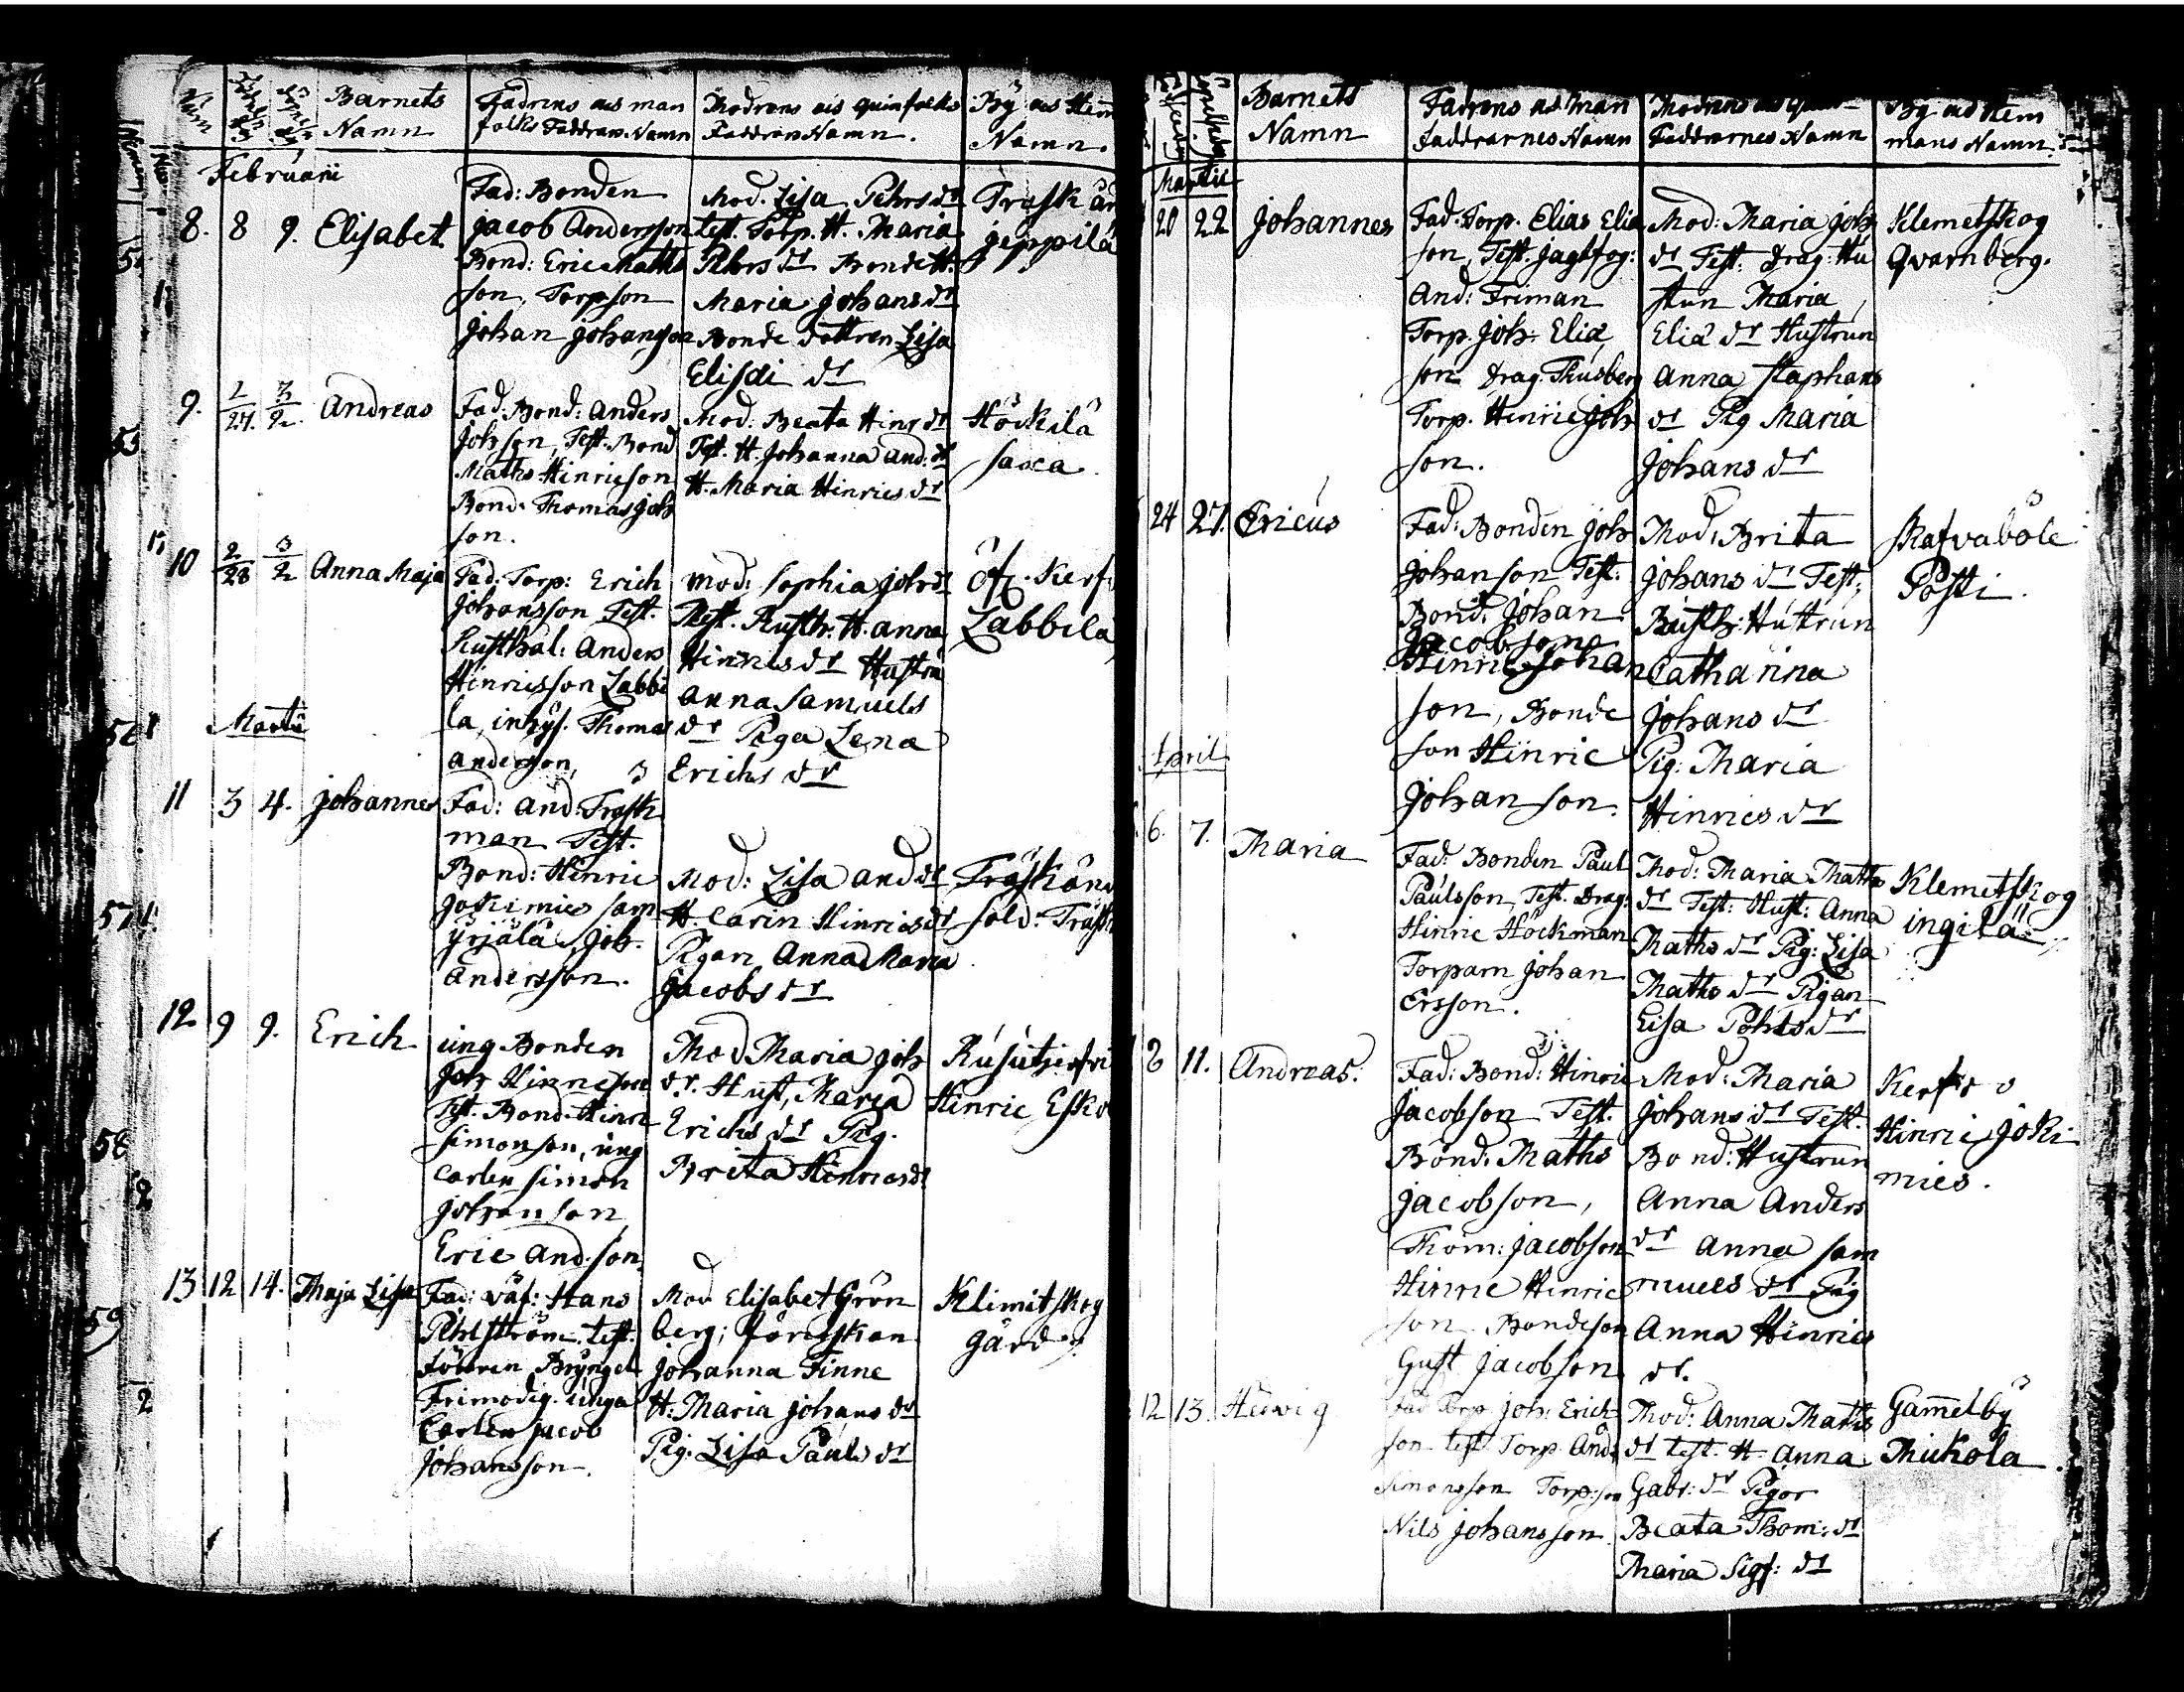 Barnets
Namn
Fadrens as man
folks Faddran Namn
Modrens ais quinfolks
Faddran Namn.
By as Hem
Namn.
Februarii
8. 8 9. Elisabet
Fad: Bonden
Jacob Andersson
Bond: Eric Maths
son, Torpson
Johan Johanson
Mod. Lisa Pehrs dr
test. Torp. H. Maria
Pehrs dr Bonde H.
Maria Johans dr
Bonde dottren Lisa
Elisæi dr
Träsk än
jeppilä
9. 1/24. 3/2. Andreas
Fad: Bond: Anders
Johsson, Test. Bond
Maths Hinricson
Bond. Thomas Joh
son.
Mod: Beata Hinr dr
Test. H. Johanna and. dr
H. Maria Hinrics dr
Höckilä
saxa
10 2/28 3/2 Anna Maja
Fad: Torp: Erich
Johansson Test.
Rusthål: Anders
Hinricsson Labbi
la, inhys. Thomas
anderson,
Mod: Sophia Johs dr
Test. Rusth. H. anna
Hinrics dr Hustru
anna Samuels
dr Piga Lena
Erichs dr
Öf. Kerf
Labbila
Martii
11 3 4. Johannes
Fad: And: Träsk
man Test.
Bond: Hinric
Jokimies sam
Yrjälä, Joh.
Andersson.
Mod: Lisa and dr
H. Carin Hinrics dr
Pigan Anna Maria
Jacobs dr
Träskän
sold: Träsk
12 9 9. Erich
ung Bonden
Joh Hinricson
Test. Bond. Hinr
Simonson, ung
Carlen Simon
Johanson
Eric And. son.
Mod Maria Joh
dr. Hust, Maria
Erichs dr Pig.
Brita Hinrics dr
Rusutjerfvi
Hinric Esko
13 12 14. Maja Lisa
Fad: väf: Hans
Pihlström. test.
Frimodig. unga
Carlen Jacob
Johansson.
Mod Elisabet Grön
berg;
Johanna Finne
H: Maria Johans dr
Pig: Lisa Pauls dr
Klimitskog
gård
Barnets
Namn
Fadrens as Man
Faddrarnes Namn
Modrens as quin
Faddrarnes Namn
By as Hem
mans Namn.
Martii
20 22 Johannes
Fad. Torp. Elias Elia
son, Test. Jagtfog:
And: Friman
Torp. Joh: Elia
son Drag. Thusberg
Torp. Hinric Joh
son.
Mod: Maria Joh
dr Test: Drag: Hu
strun Maria
Eliæ dr Hustrun
Anna Staphans
dr Pig Maria
Johans dr
Klemetskog
Qvarnberg.
24 27. Ericus
Fad: Bonden Joh
Johanson Test.
Bond. Johan
Jacobsons
Hinric Johan
son, Bonde
son Hinric
Johanson.
Mod: Brita
Johans dr Test:
Rusth: Hustrun
Catharina
Johans dr
Pig: Maria
Hinrics dr
Skafvaböle
Posti.
April
6. 7. Maria
Fad: Bonden Paul
Paulsson, Test. Drag:
Hinric Höckman
Torparn Johan
Ersson.
Mod: Maria Maths
dr Test: Hust: Anna
Maths dr Pig: Lisa
Maths dr Pigan
Lisa Pehrs dr
Klemetskog
ingilä
8 11. Andreas.
Fad: Bond: Hinric
Jacobson Test.
Bond: Maths
Jacobson,
Thom: Jacobson
Hinric Hinric
son. Bondeson
Gust Jacobson
Mod: Maria
Johans dr Test.
Bond: Hustrun
Anna Anders
dr Anna Sam
muels dr Pig
Anna Hinrics
dr.
Hinric Joki
mies.
12 13. Hedvig
Fad Torp Joh: Erich
son test. Torp. And:
Simonsson Torp: son
Nils Johansson
Mod: Anna Maths
dr test. H. Anna
Gabr: dr Pigor
Beata Thom: dr
Maria Sigf: dr
Gammelby
Mickola.